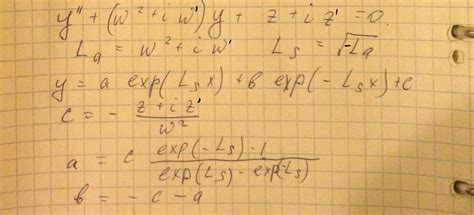 y'' + (w² + i w') y + z + i z' = 0.
L_a = w² + i w' L_s = √-L_a
y = a exp(L_s x) + b exp(-L_s x) + c
c = - (z + i z') / w²
a = c (exp(-L_s) - 1) / (exp(L_s) - exp(-L_s))
b = -c - a